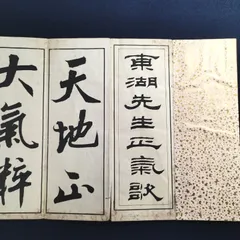 東湖先生正氣歌
天地正
大氣粹